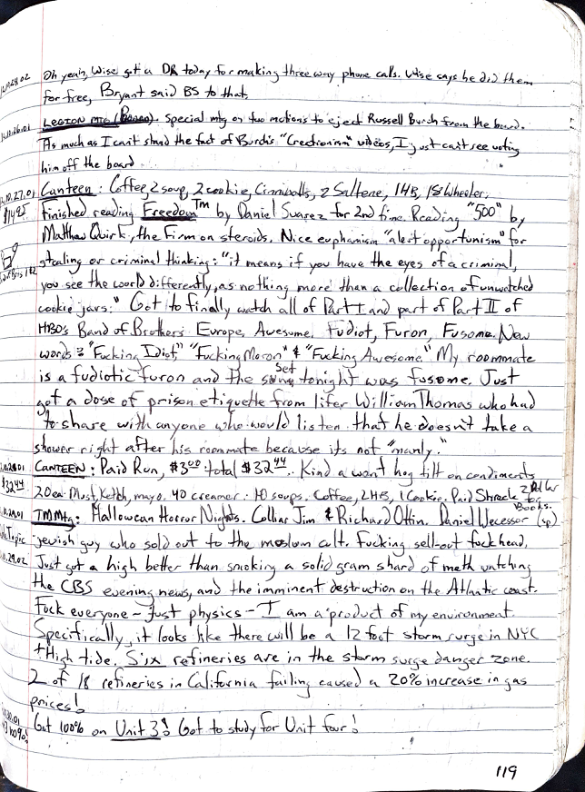 Oh yeah, Wise got a DR today for making three way phone calls. Wise says he did them
for free, Bryant said BS to that.
LEGION mtg (Board). Special mtg on two motions to eject Russell Burch from the board.
As much as I can't stand the fact of Burch's "Creationism" videos, I just can't see voting
him off the board.
10.27.01 Canteen: Coffee, 2 soup, 2 cookie, Cinnabolls, 2 Saltene, 1HB, 1 Wheeler.
$14.95 Finished reading Freedom™ by Daniel Suarez for 2nd time. Reading "500" by
Matthew Quirk, the Firm on steroids. Nice euphamism "alert opportunism" for
stealing or criminal thinking: "it means if you have the eyes of a criminal,
you see the world differently, as nothing more than a collection of unwatched
cookie jars." Got to finally watch all of Part I and part of Part II of
HBO's Band of Brothers: Europe, Awesume. Fudiot, Furon, Fusome. New
words: "Fucking Idiot," "Fucking Moron" & "Fucking Awesome" My roommate
is a fudiotic furon and the set tonight was fusome. Just
got a dose of prison etiquette from lifer William Thomas who had
to share with anyone who would listen that he doesn't take a
shower right after his roommate because its not "manly."
CANTEEN: Paid Run, $3.00 total $32.44. Kind a want hog till on condiments
$32.44 20ea Must, Ketch, mayo. 40 creamer. 10 soups. Coffee, 2HB, 1 Cookie. Paid for
Books.
TM Mtg: Hallowean Horror Nights. Collbar Jim & Richard Ottin. Daniel Wecessor (sp)
Topic jewish guy who sold out to the moslum cult. Fucking sell-out fuckhead.
Just got a high better than smoking a solid gram shard of meth watching
the CBS evening news, and the imminent destruction on the Atlantic coast.
Fuck everyone - Just physics - I am a product of my environment.
Specifically, it looks like there will be a 12 foot storm surge in NYC
+ High tide. Six refineries are in the storm surge danger zone.
2 of 18 refineries in California failing caused a 20% increase in gas
prices!
Got 100% on Unit 3! Got to study for Unit four!
119